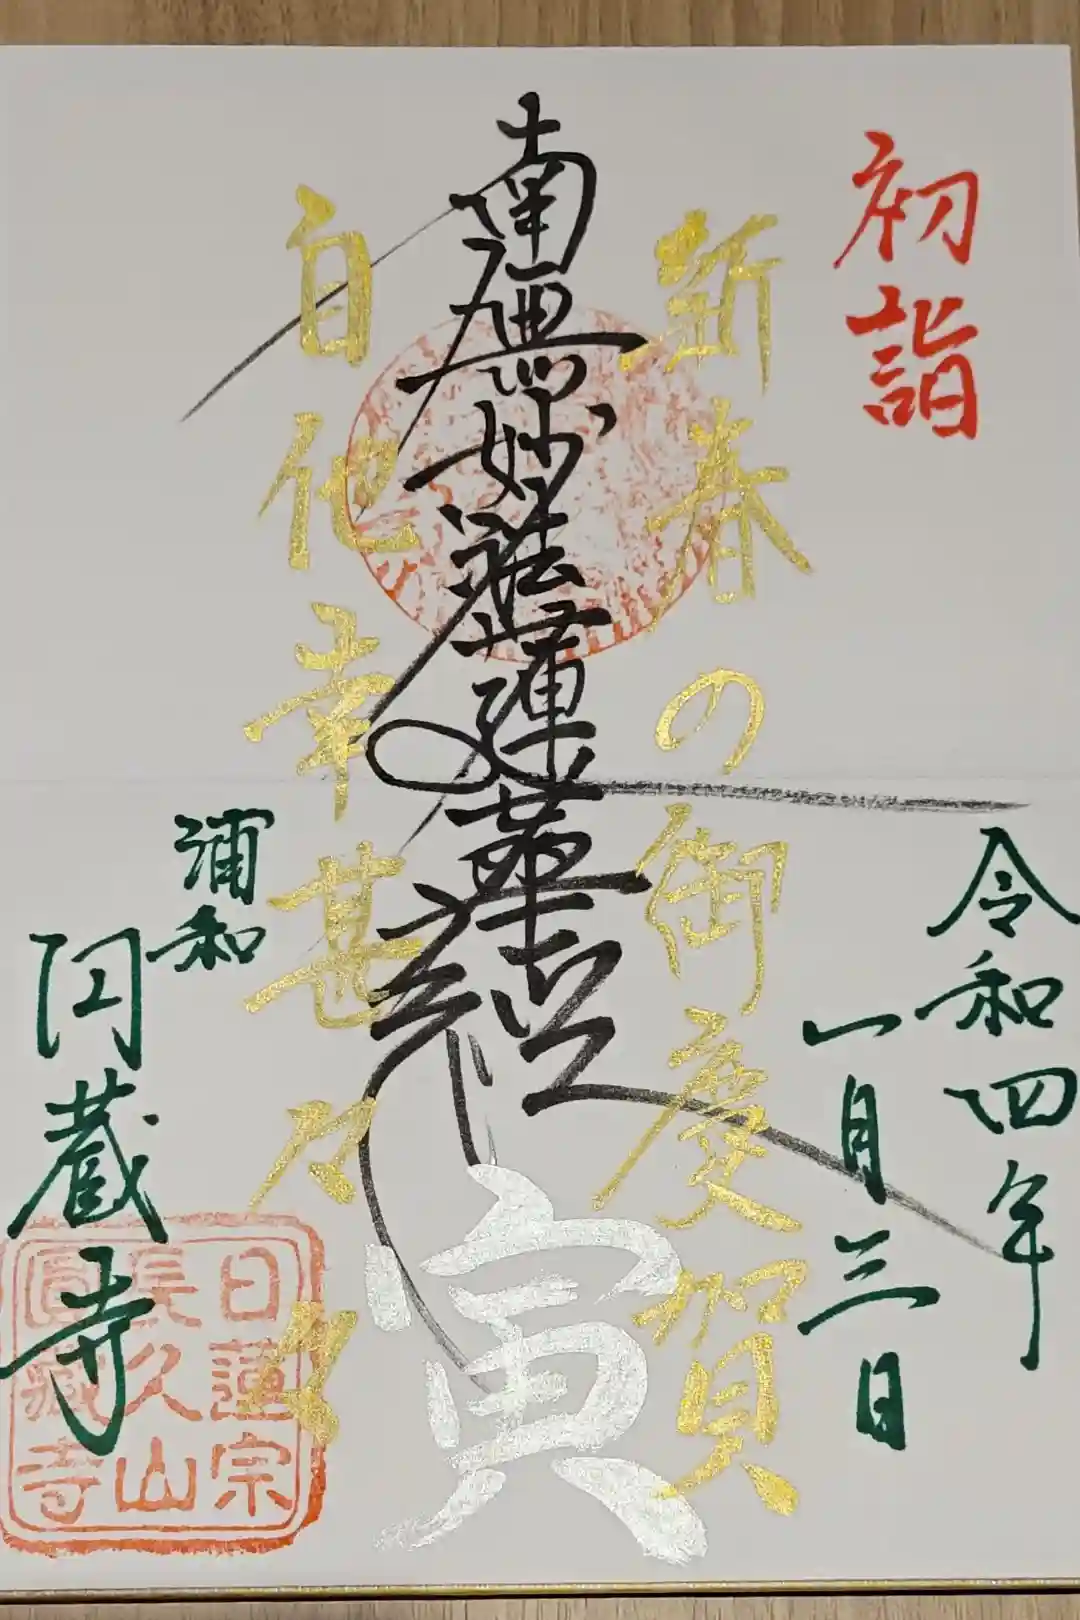 初詣
令和四年
一月三日
新春の御慶賀
南無妙法蓮華経
寅
自他幸甚々々
浦和
円蔵寺
日蓮宗
長久山
圓藏寺